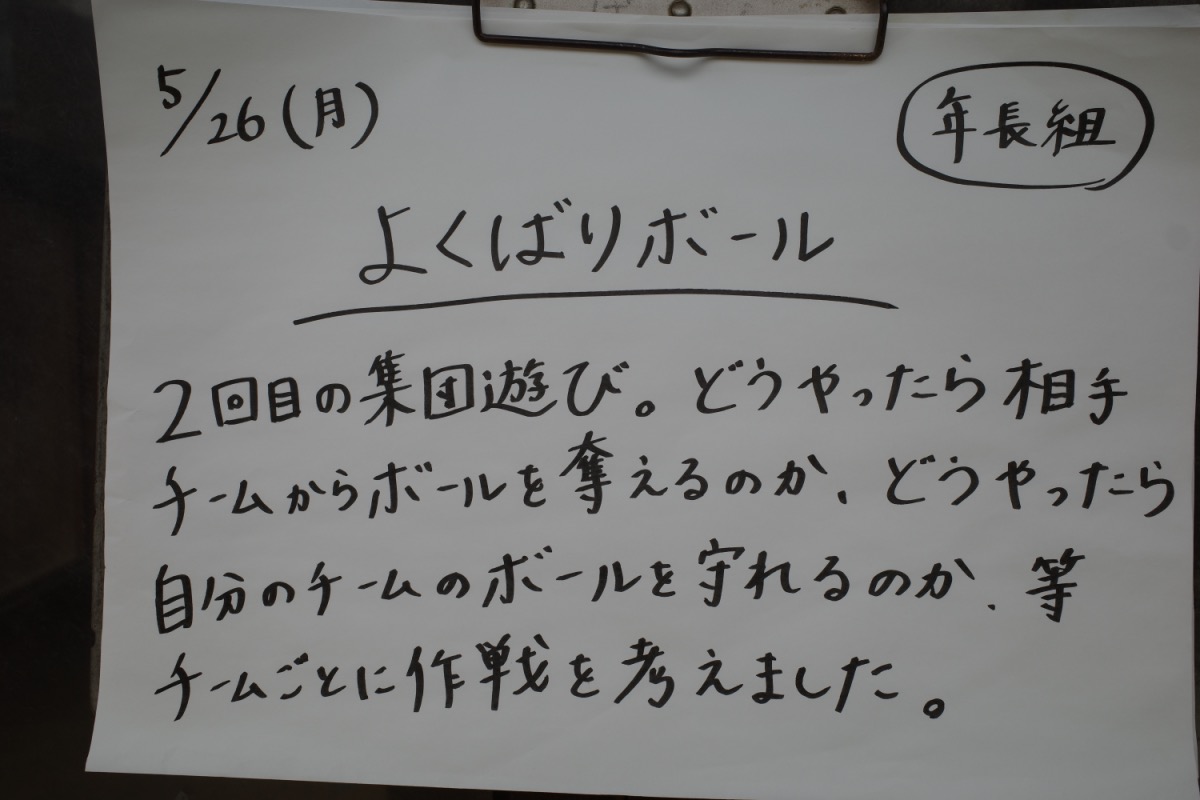 5/26(月)
年長組
よくばりボール
2回目の集団遊び。どうやったら相手
チームからボールを奪えるのか、どうやったら
自分のチームのボールを守れるのか、等
チームごとに作戦を考えました。